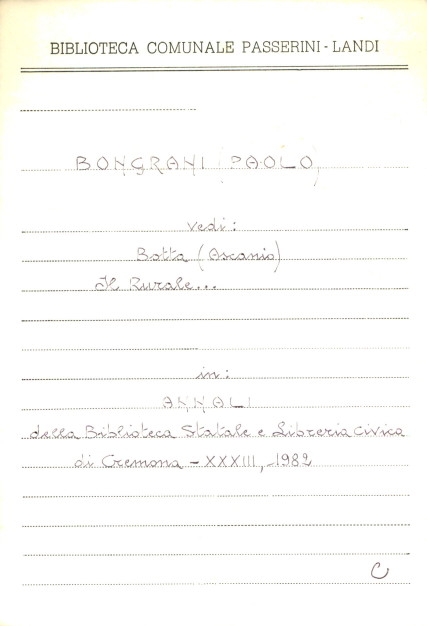 BIBLIOTECA COMUNALE PASSERINI - LANDI
BONGRANI (PAOLO)
vedi:
Botta (Ascanio)
Il Rurale...
in:
ANNALI
della Biblioteca Statale e Libreria civica
di Cremona - XXXIII, -1982
C